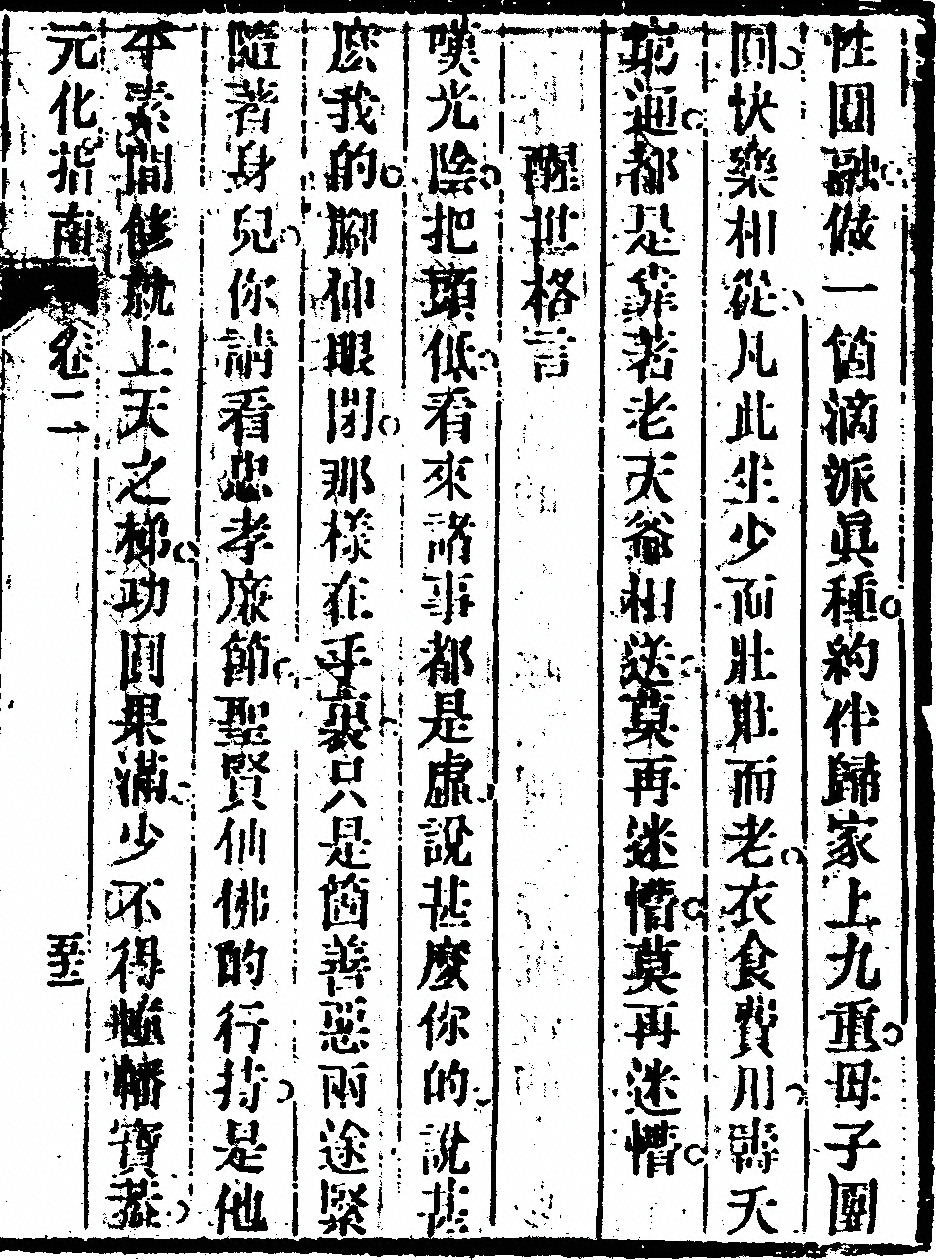 性圓融做一箇滴派眞種約伴歸家上九重母子團
圓快樂相從凡此生少而壯壯而老衣食費用壽夭
窮通都是靠着老天爺相送莫再迷懵莫再迷懵
醒世格言
嘆光陰把頭低看來諸事都是虛說甚麼你的說甚
麽我的腳伸眼閉那樣在乎裏只是箇善惡兩途緊
隨著身兒你請看忠孝廉節聖賢仙佛的行持是他
平素間修就上天之梯功圓果滿少不得幢幡寶蓋
元化指南 卷二 五十一